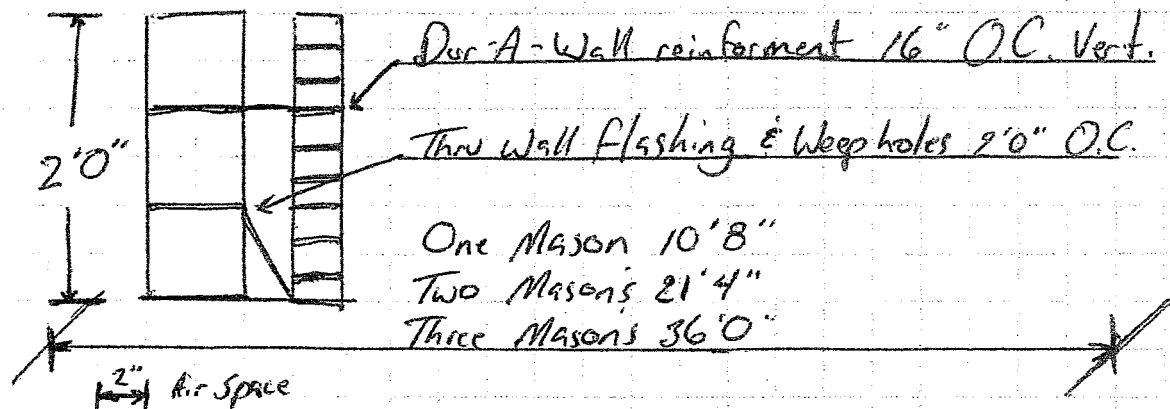 Dur-A-Wall reinforment 16" O.C. Vert.
2'0"
Thru Wall flashing & Weepholes 2'0" O.C.
One Mason 10'8"
Two Mason's 21'4"
Three Mason's 36'0"
2" Air Space